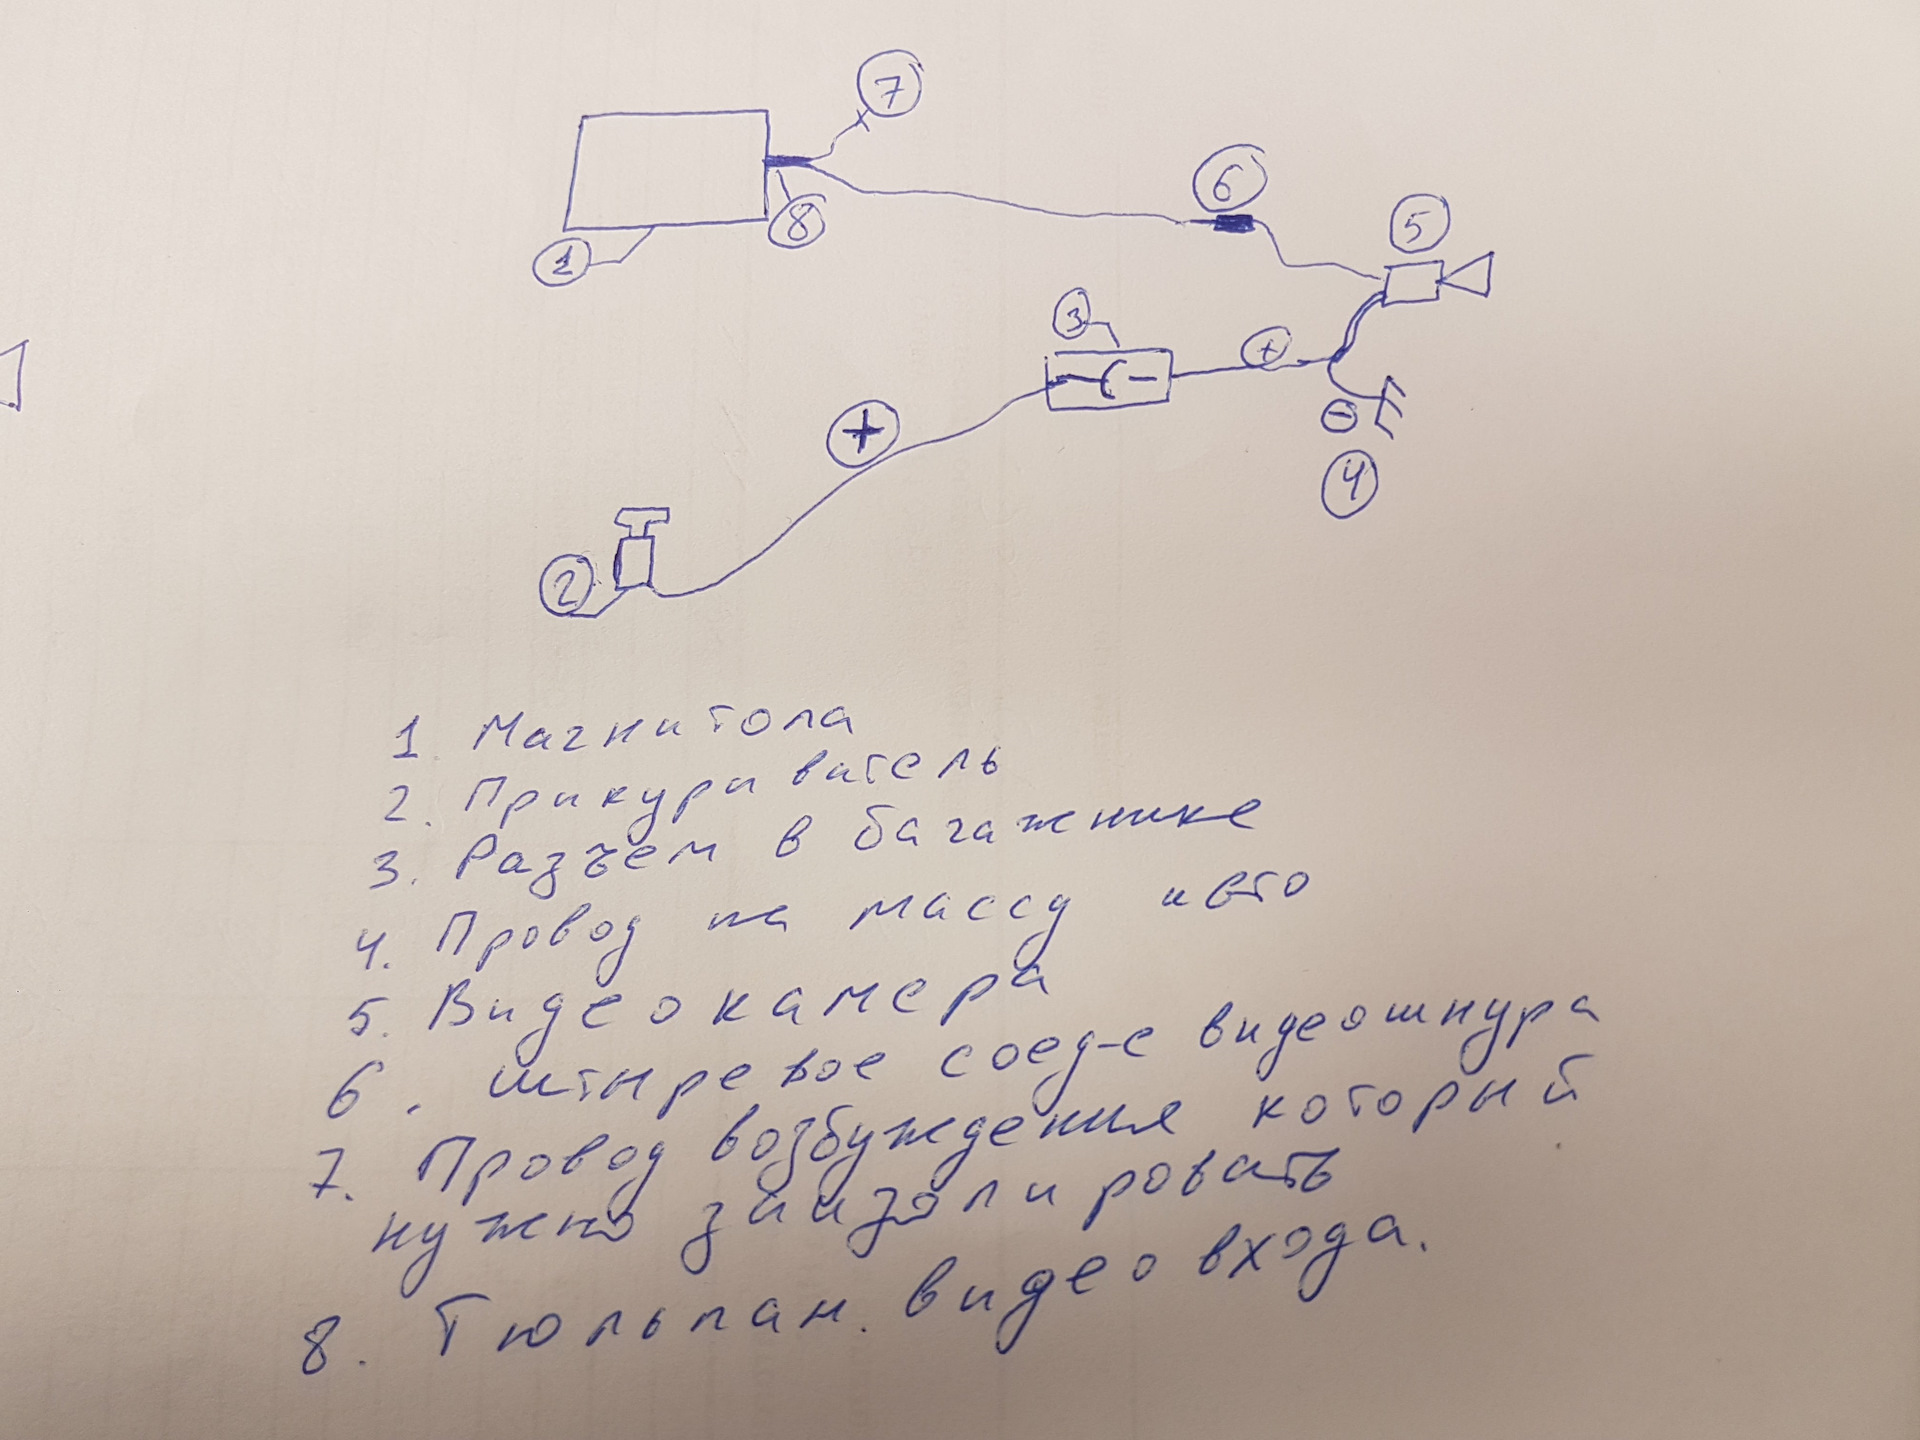 7
6
8
5
1
3
+
+
-
4
2
1 Магнитола
2. Прикуриватель
3. Разъем в багажнике
4. Провод на массу авто
5. Видеокамера
6. Штыревое соед-е видеошнура
7. Провод возбуждения который
нужно заизолировать
8. Тюльпан. видео входа.